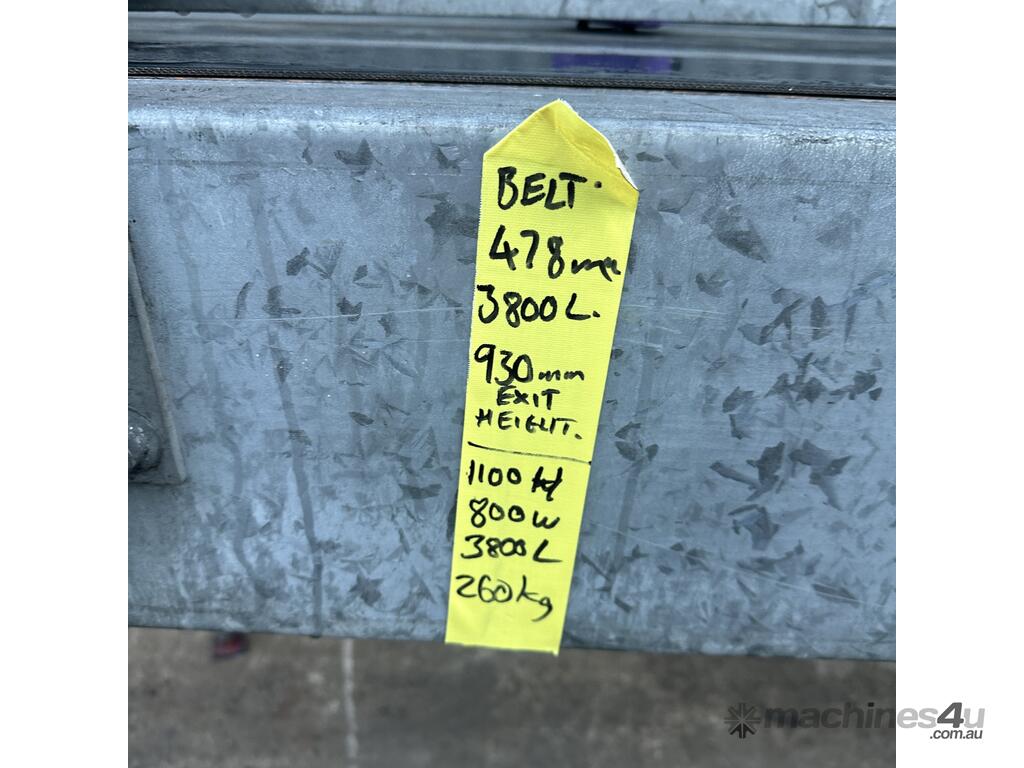 BELT.
478mm
3800L.
930mm
EXIT
HEIGHT.
1100H
800W
3800L
260kg
machines4u
.com.au